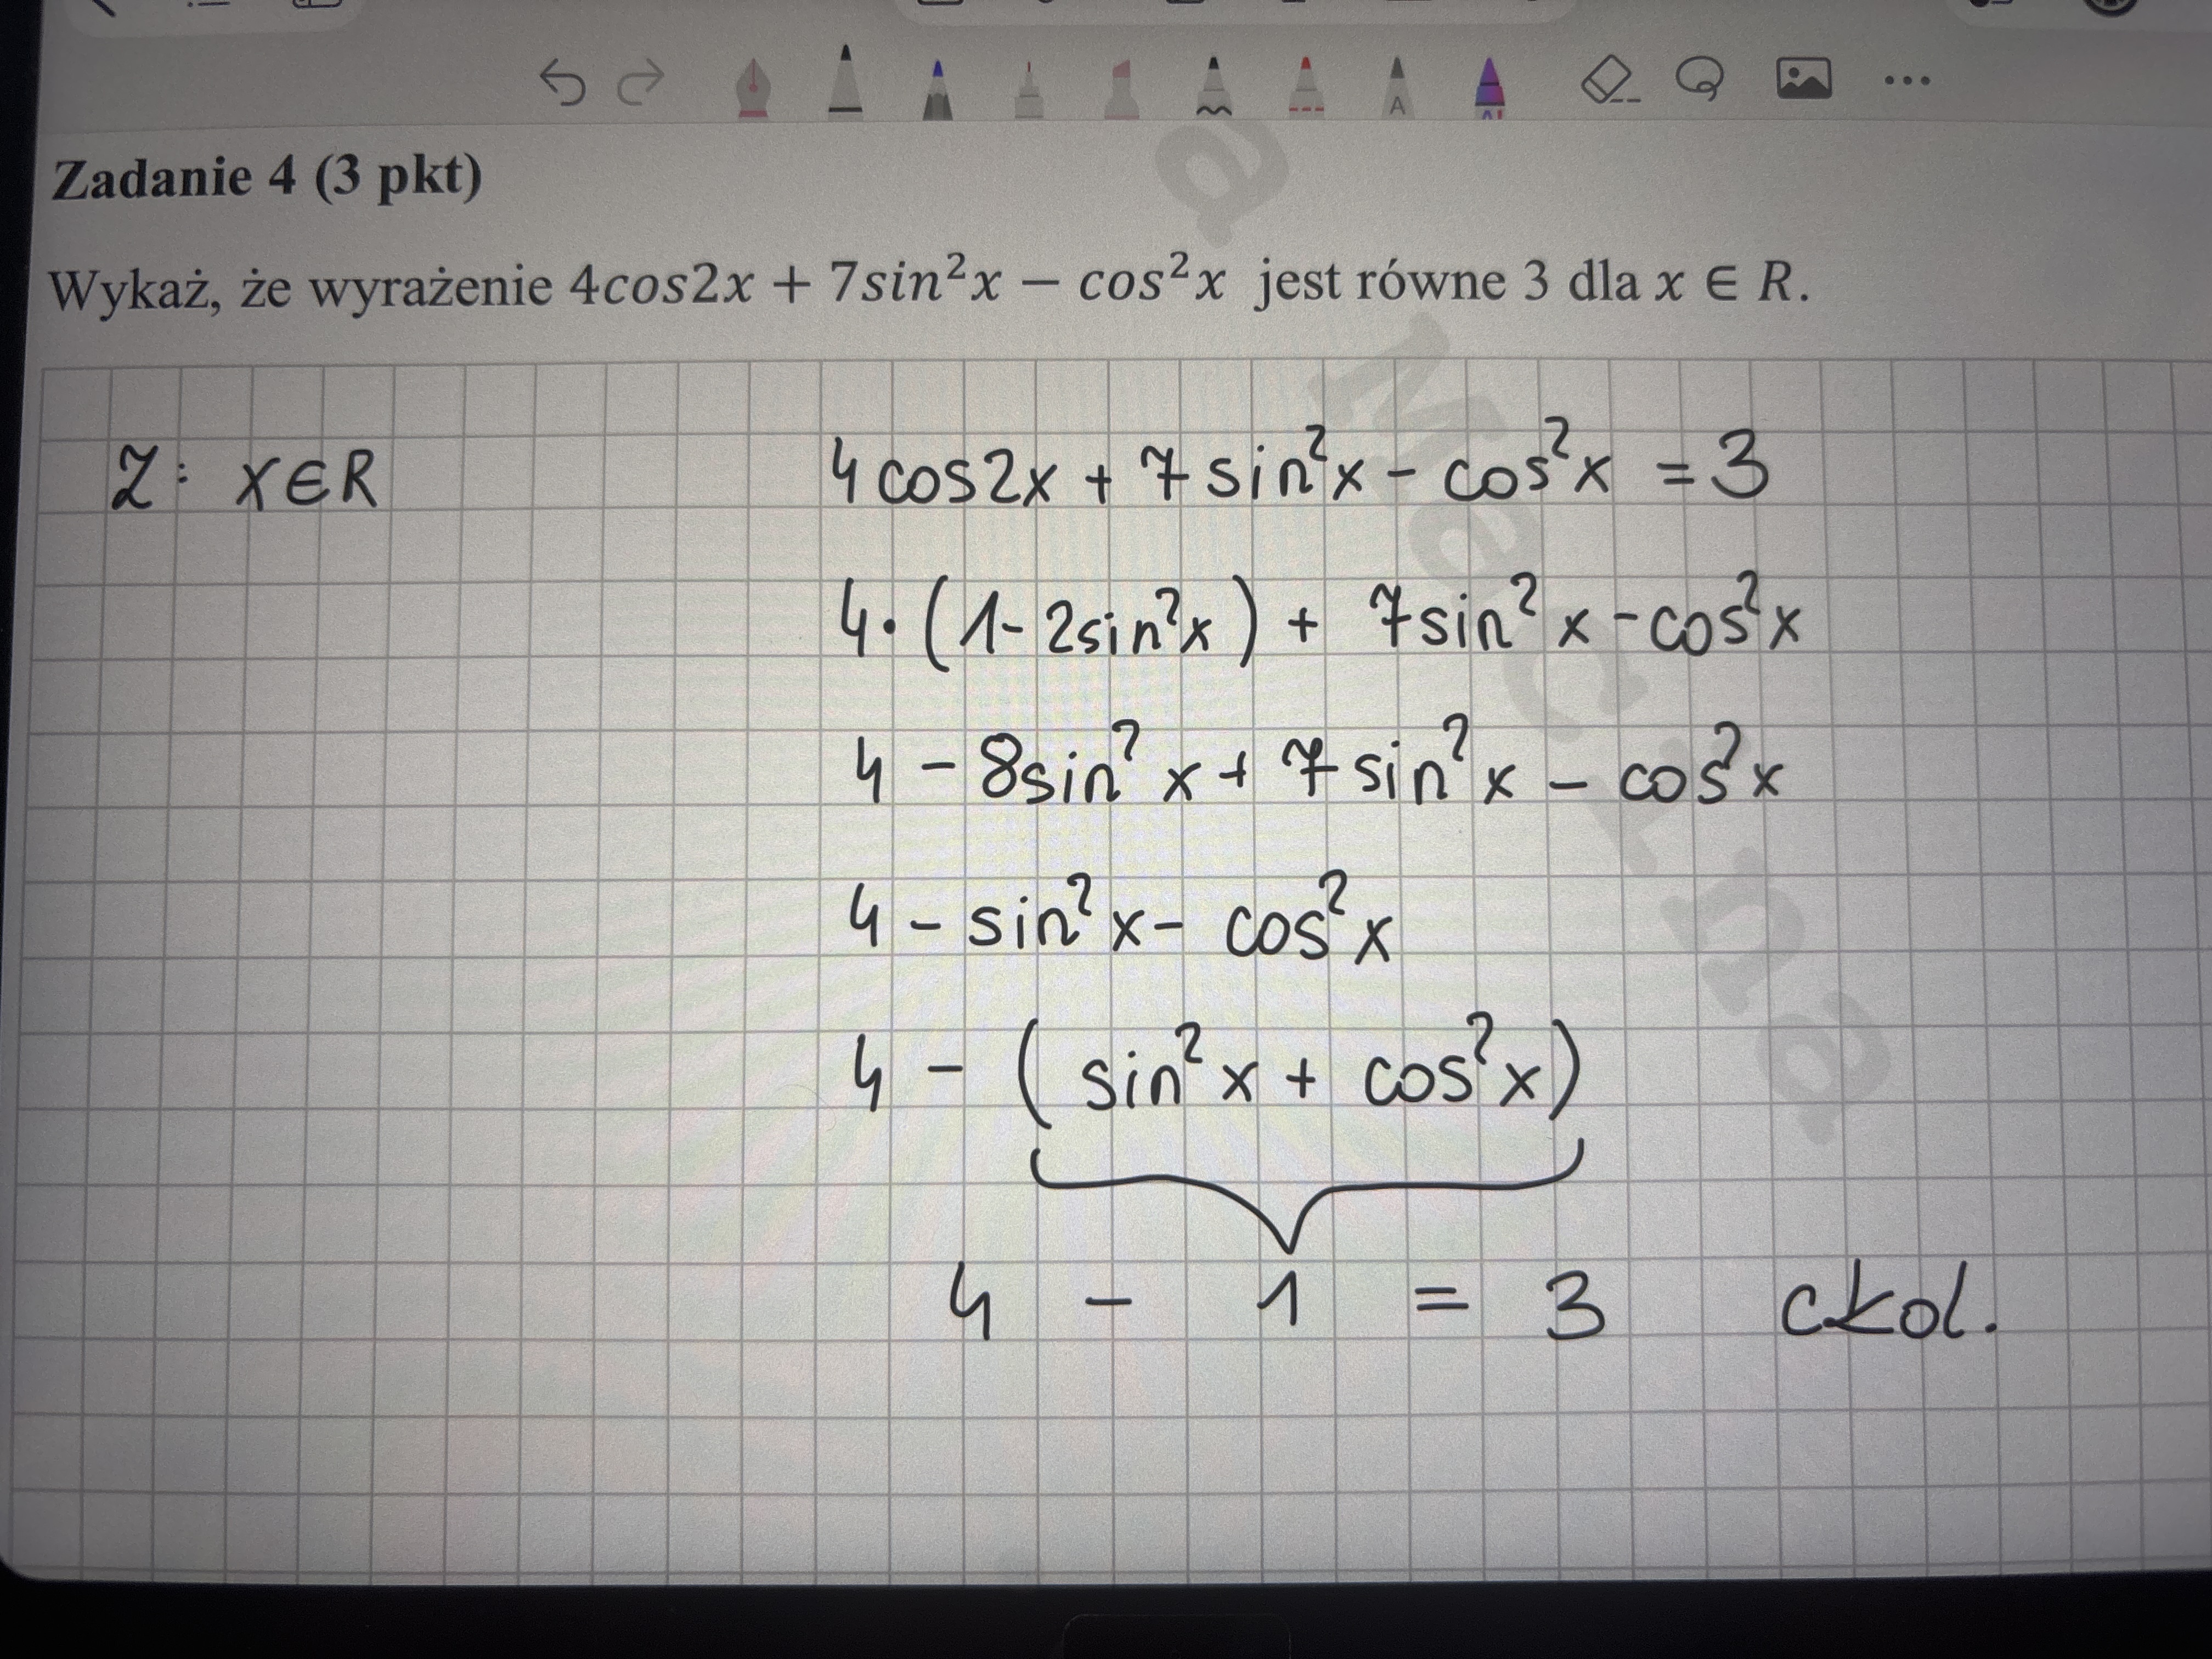 Zadanie 4 (3 pkt)
Wykaż, że wyrażenie 4cos2x + 7sin²x − cos²x jest równe 3 dla x ∈ R.
Z: x∈R
4cos2x + 7sin²x - cos²x = 3
4·(1-2sin²x) + 7sin²x - cos²x
4 - 8sin²x + 7sin²x - cos²x
4 - sin²x - cos²x
4 - (sin²x + cos²x)
4 - 1 = 3 ckd.